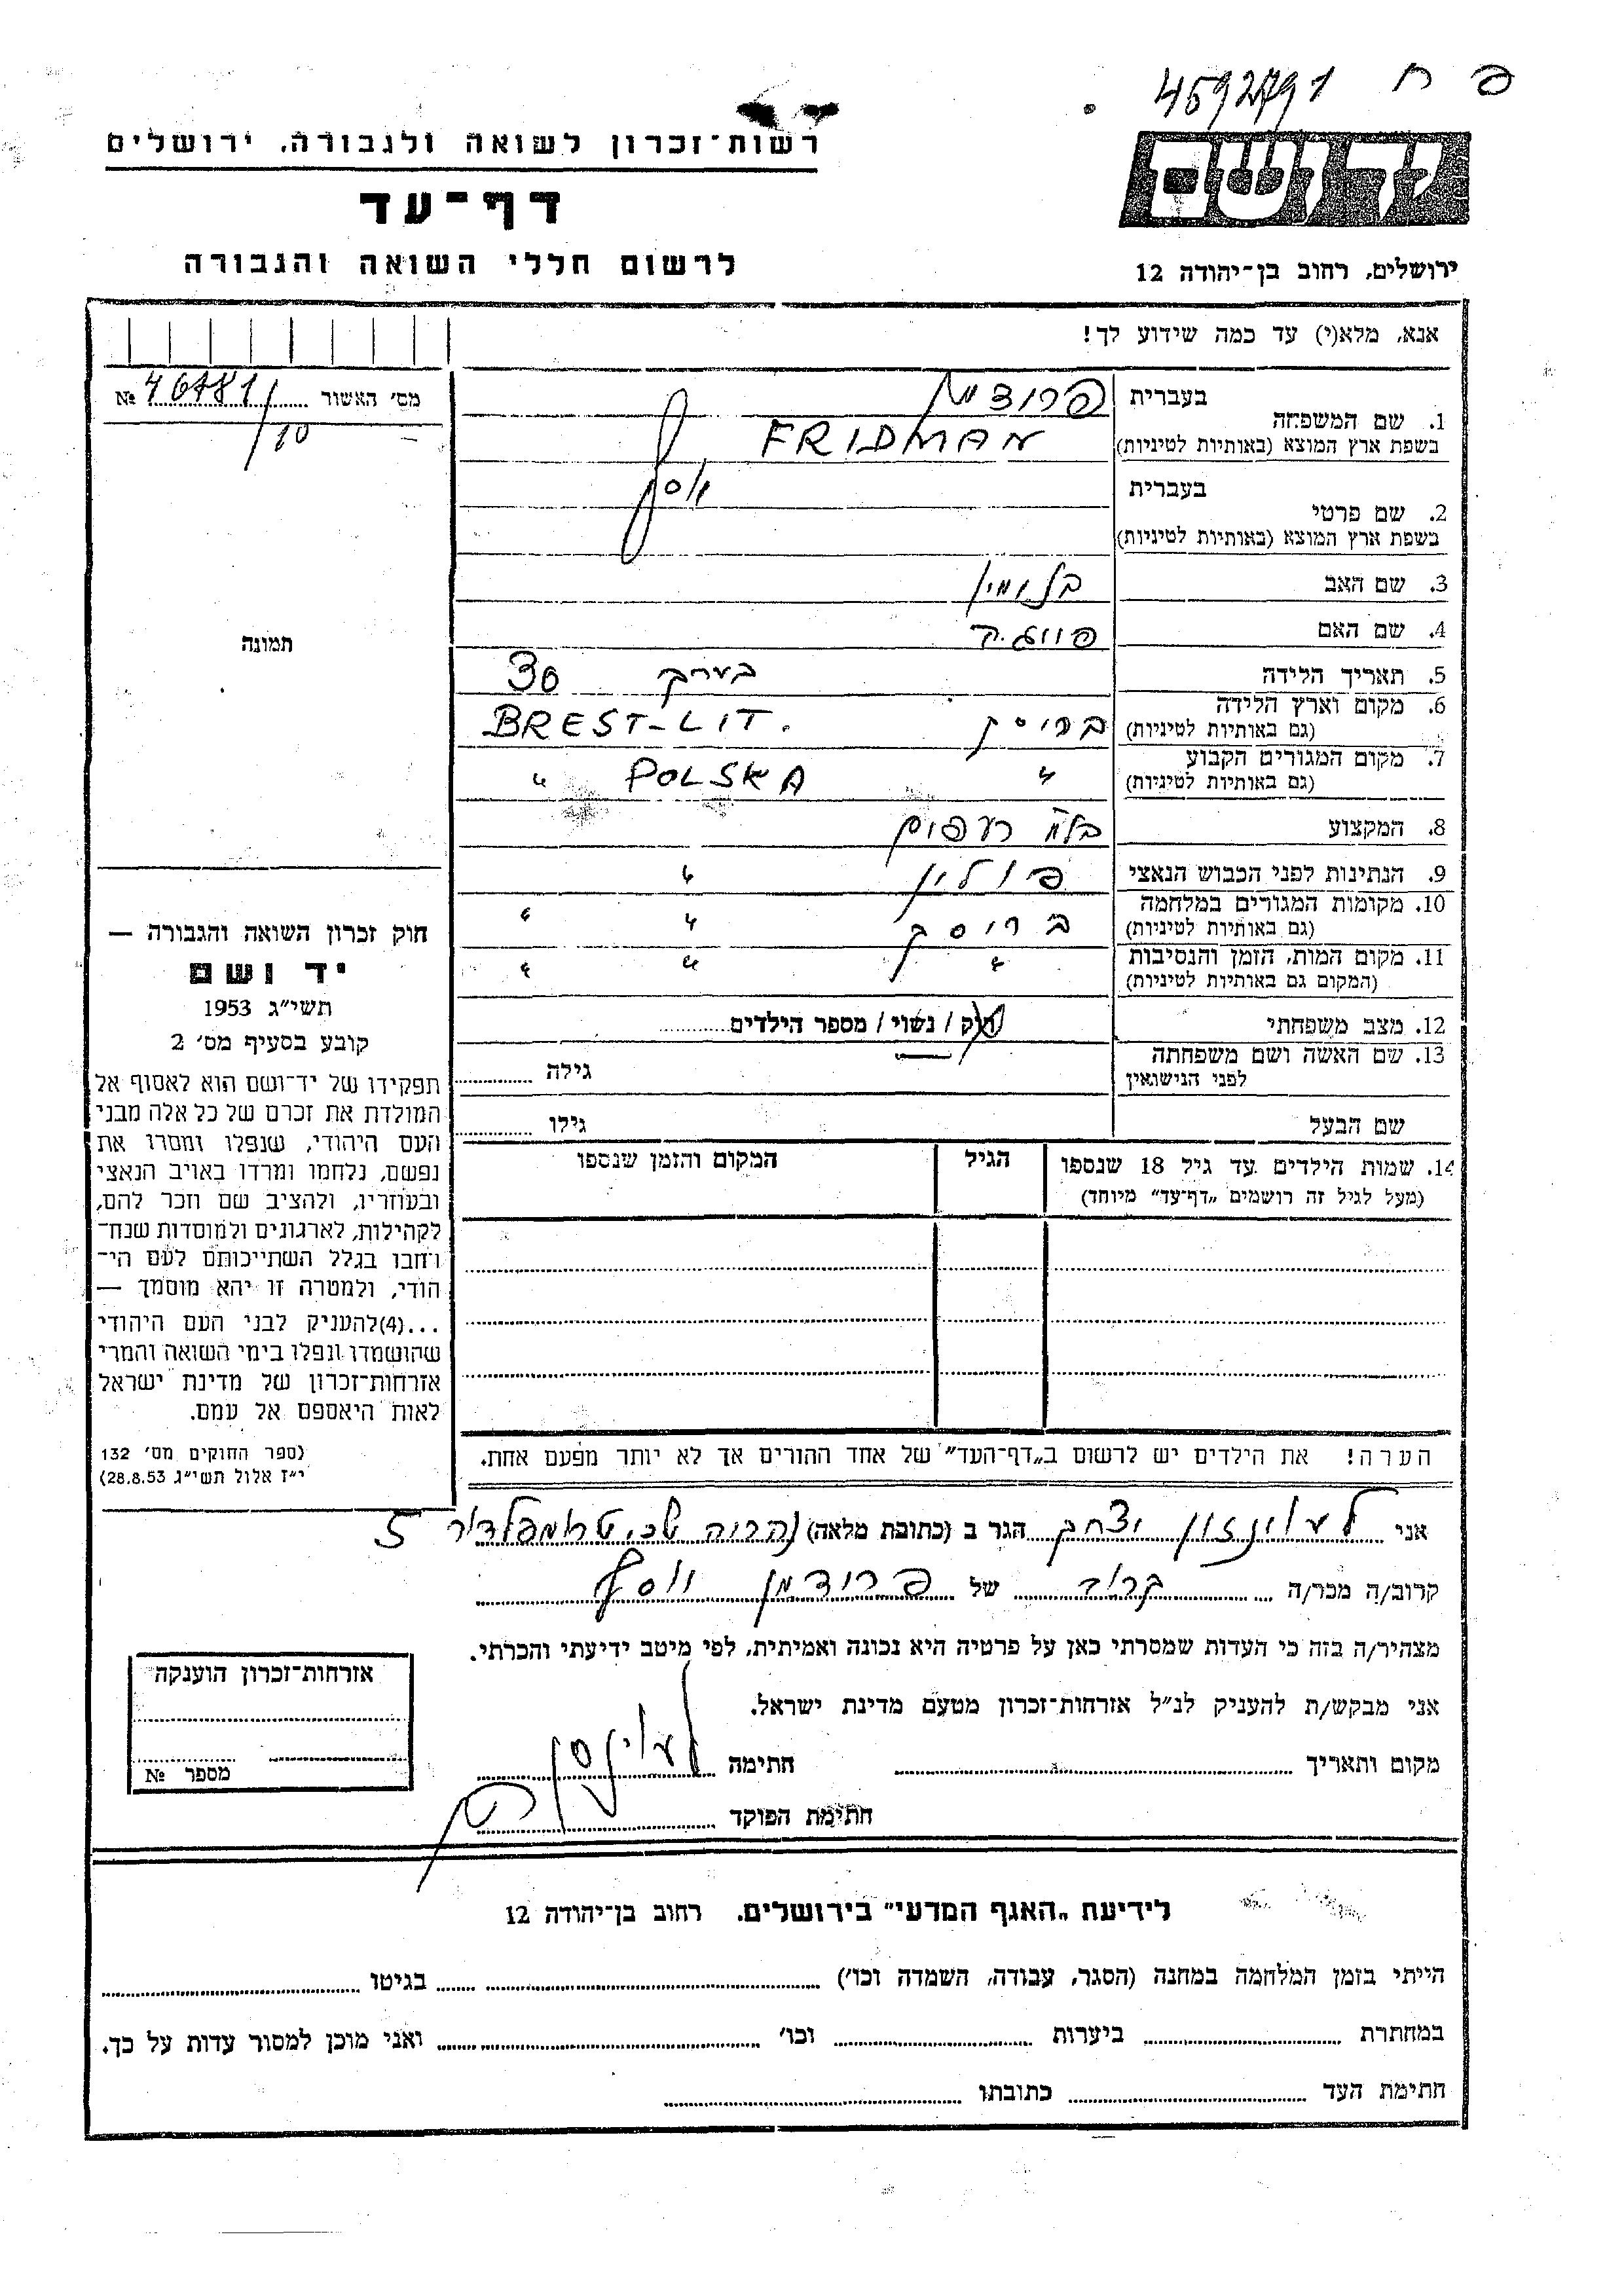 4692791 ח פ
רשות-זכרון לשואה ולגבורה, ירושלים
דף-עד
לרשום חללי השואה והגבורה
יד ושם
ירושלים, רחוב בן-יהודה 12
אנא, מלא(י) עד כמה שידוע לך!
מס' האשור № 46781/10
תמונה
1. שם המשפחה
בעברית פרידמן
בשפת ארץ המוצא (באותיות לטיניות) FRIDMAN
2. שם פרטי
בעברית יוסף
בשפת ארץ המוצא (באותיות לטיניות)
3. שם האב בנימין
4. שם האם
5. תאריך הלידה בערך 30
6. מקום וארץ הלידה (גם באותיות לטיניות) בריסק BREST-LIT.
7. מקום המגורים הקבוע (גם באותיות לטיניות) " POLSKA "
8. המקצוע
9. הנתינות לפני הכבוש הנאצי פולין "
10. מקומות המגורים במלחמה (גם באותיות לטיניות) בריסק " "
11. מקום המות, הזמן והנסיבות (המקום גם באותיות לטיניות) " " "
12. מצב משפחתי רוק / נשוי / מספר הילדים
13. שם האשה ושם משפחתה לפני הנישואין גילה
שם הבעל גילו
14. שמות הילדים עד גיל 18 שנספו (מעל לגיל זה רושמים „דף-עד" מיוחד)
הגיל
המקום והזמן שנספו
הערה! את הילדים יש לרשום ב„דף-העד" של אחד ההורים אך לא יותר מפעם אחת.
חוק זכרון השואה והגבורה —
יד ושם
תשי"ג 1953
קובע בסעיף מס' 2
תפקידו של יד-ושם הוא לאסוף אל
המולדת את זכרם של כל אלה מבני
העם היהודי, שנפלו ומסרו את
נפשם, נלחמו ומרדו באויב הנאצי
ובעוזריו, ולהציב שם וזכר להם,
לקהילות, לארגונים ולמוסדות שנח-
רחבו בגלל השתייכותם לעם הי-
הודי, ולמטרה זו יהא מוסמך —
...(4)להעניק לבני העם היהודי
שהושמדו ונפלו בימי השואה והמרי
אזרחות-זכרון של מדינת ישראל
לאות היאספם אל עמם.
(ספר החוקים מס' 132
י"ז אלול תשי"ג 28.8.53)
אני לעוינזון יצחק הגר ב (כתובת מלאה) נהריה טראמפלדור 5
קרוב/ה מכר/ה קרוב של פרידמן יוסף
מצהיר/ה בזה כי העדות שמסרתי כאן על פרטיה היא נכונה ואמיתית, לפי מיטב ידיעתי והכרתי.
אני מבקש/ת להעניק לנ"ל אזרחות-זכרון מטעם מדינת ישראל.
מקום ותאריך חתימה
חתימת הפוקד
אזרחות-זכרון הוענקה
מספר №
לידיעת „האגף המדעי" בירושלים, רחוב בן-יהודה 12
הייתי בזמן המלחמה במחנה (הסגר, עבודה, השמדה וכו') בגיטו
במחתרת ביערות וכו' ואני מוכן למסור עדות על כך.
חתימת העד כתובתו